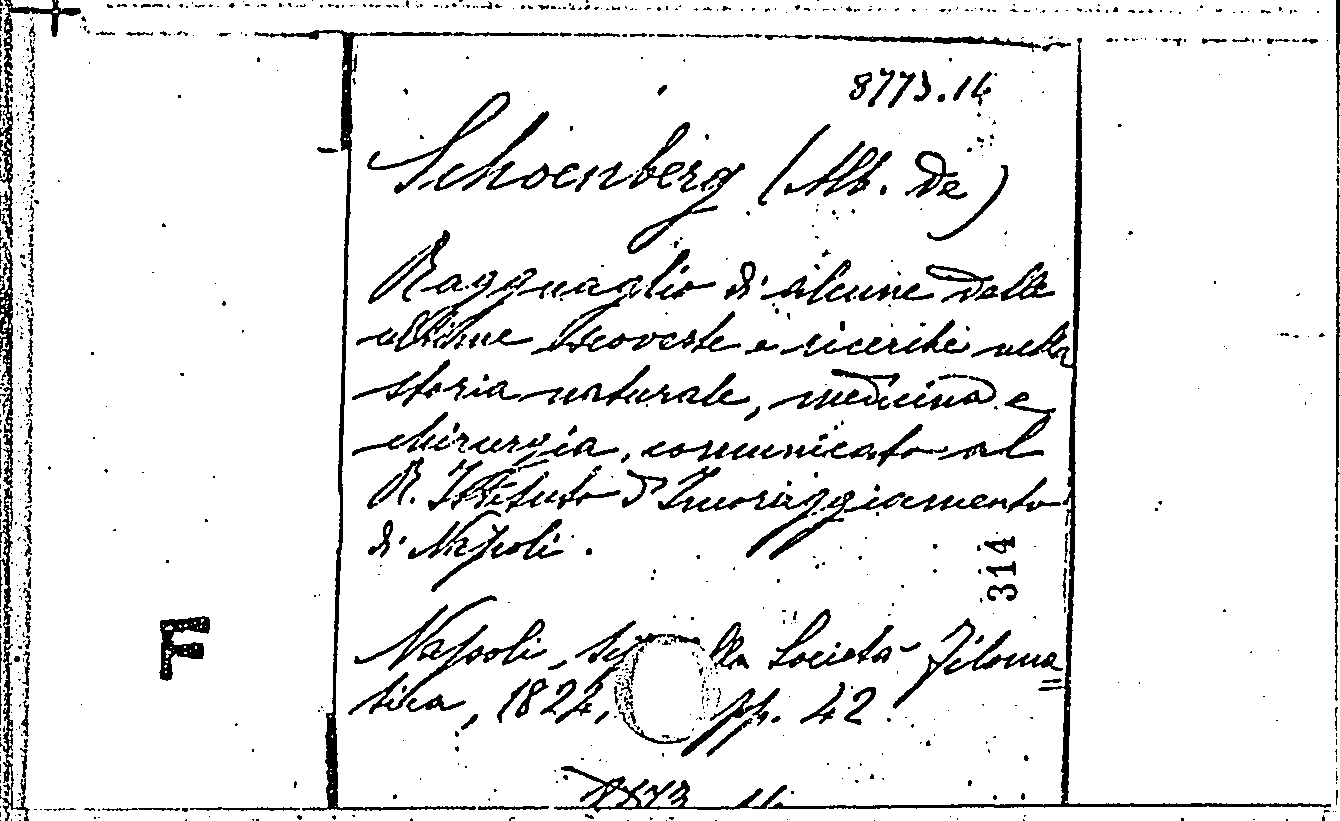 8773.14
Schoenberg (Alb. de)
Ragguaglio di alcune delle
ultime scoverte e ricerche nella
storia naturale, medicina e
chirurgia, comunicato al
R. Istituto d'Incoraggiamento
di Napoli.
314
F
Napoli, lla Società Filoma=
tica, 1822, pp. 42